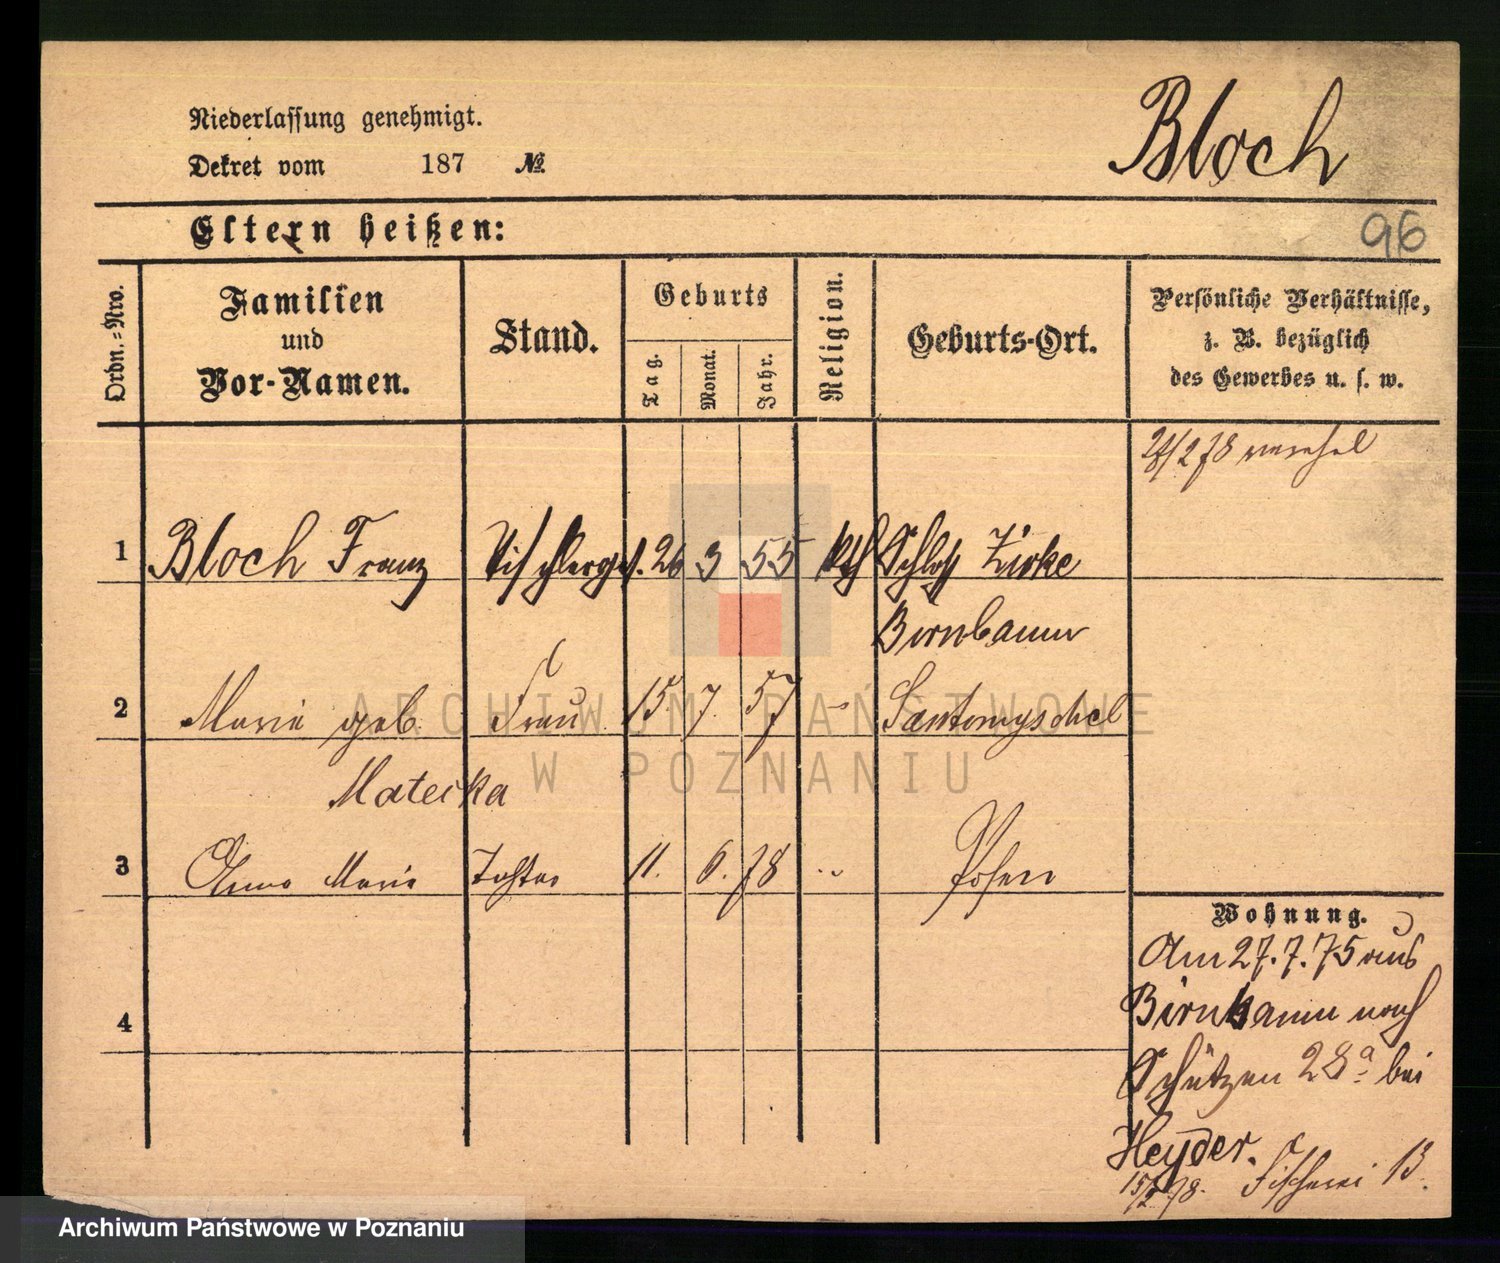 Niederlassung genehmigt.
Dekret vom 187 №
Bloch
96
Eltern heißen:
Ordn.=Nro.
Familien
und
Vor-Namen.
Stand.
Geburts
Tag.
Monat.
Jahr.
Religion.
Geburts-Ort.
Persönliche Verhältnisse,
z. B. bezüglich
des Gewerbes u. s. w.
278 verehel
1 Bloch Franz Tischlerges. 26 3 55 kth Schloß Zirke
Birnbaum
2 Marie geb Frau 15. 7. 57 - Santomyschel
Mateika
3 Anna Marie Tochter 11. 6. 78 " Posen
4
Wohnung.
Am 27.7.75 aus
Birnbaum nach
Schützen 28a bei
Heyder.
15/ 78. Fischerei 13.
ARCHIWUM PAŃSTWOWE
W POZNANIU
Archiwum Państwowe w Poznaniu